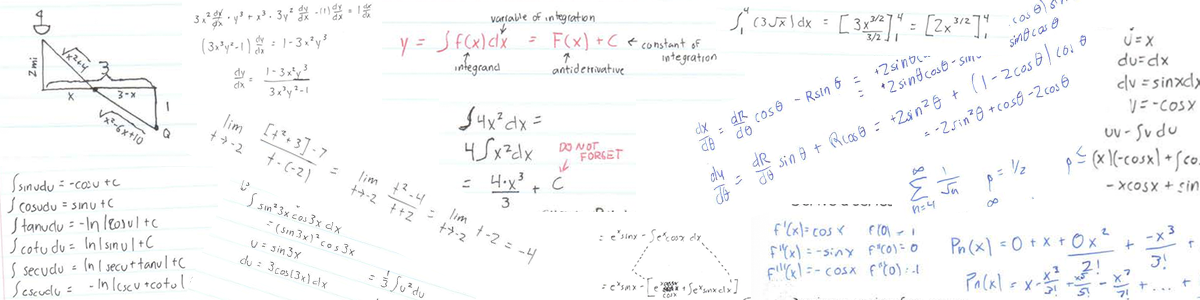 2 mi
√x²+4
3
x
3-x
1
√x²-6x+10
Q
∫ sinudu = -cosu +C
∫ cosudu = sinu +C
∫ tanudu = -ln|cosu| +C
∫ cotudu = ln|sinu| +C
∫ secudu = ln|secu+tanu| +C
∫ cscudu = -ln|cscu+cotu|
3x² dx/dx · y³ + x³ · 3y² dy/dx - 1(1) dy/dx = 1 dx/dx
(3x³y²-1) dy/dx = 1-3x²y³
dy/dx = 1-3x²y³ / 3x³y²-1
lim t→-2 [t²+3]-7 / t-(-2) = lim t→-2 t²-4 / t+2 = lim t→-2 t-2 = -4
∫ sin²3x cos3x dx
= (sin3x)² cos3x
u = sin3x
du = 3cos(3x)dx
= 1/3 ∫u²du
variable of integration
y = ∫f(x)dx = F(x) + C ← constant of integration
integrand
antiderivative
∫4x²dx =
4∫x²dx
DO NOT FORGET
= 4·x³/3 + C
= eˣsinx - ∫eˣcosx dx
= eˣsinx - [eˣcosx + ∫eˣsinxdx]
∫₁⁴ (3√x)dx = [3x^3/2 / 3/2]₁⁴ = [2x^3/2]₁⁴
dx/dθ = dR/dθ cosθ - Rsinθ =
dy/dθ = dR/dθ sinθ + Rcosθ = +2sin²θ + (1-2cosθ)cosθ
= -2sin²θ + cosθ - 2cosθ
∞ Σ n=4 1/√n
p = 1/2
∞
U=x
du=dx
dv=sinxdx
V=-cosx
uv-∫vdu
(x)(-cosx)+∫co
-xcosx + sin
f'(x)= cosx
f''(x) = -sinx f''(0)= 0
f'''(x)= -cosx f'''(0)= -1
Pn(x) = 0 + x + 0x²/2! + -x³/3! +